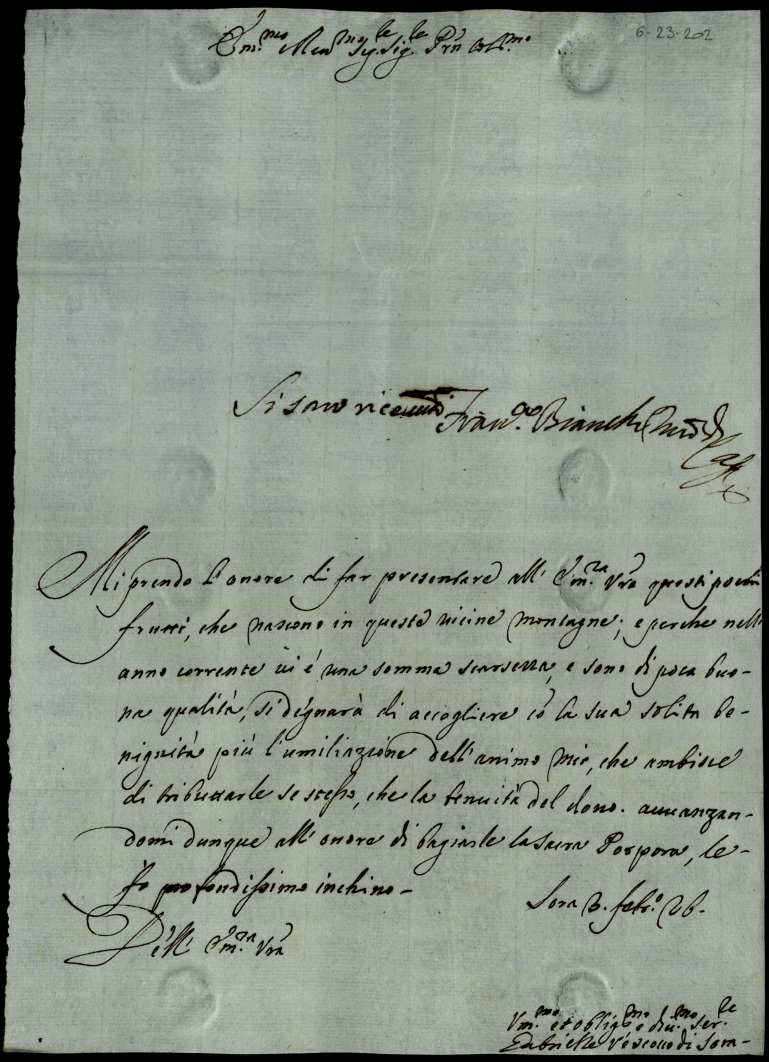 6-23-202
Em.mo e Rev.mo Sig.re Sig.re Prñ Col.mo
Si sono ricevuti Fran.co Bianchi
Mi prendo l'onore di far presentare all' Em.za Vrã questi pochi
frutti, che nascono in queste vicine montagne; e perche nell'
anno corrente vi é una somma scarsezza, e sono di poca buo-
na qualità, si degnarà di accogliere cõ la sua solita be-
nignità più l'umiliazione dell'animo mio, che ambisce
di tributarle se stesso, che la tenuità del dono. auuanzan-
domi dunque all' onore di bagiarle la Sacra Porpora, le
fo profondissimo inchino-
Sora 3. feb.o 26.
Dell' Em.za Vrã
Vm.mo et oblig.mo e diu.mo ser.re
Gabriele Vescouo di Sora-